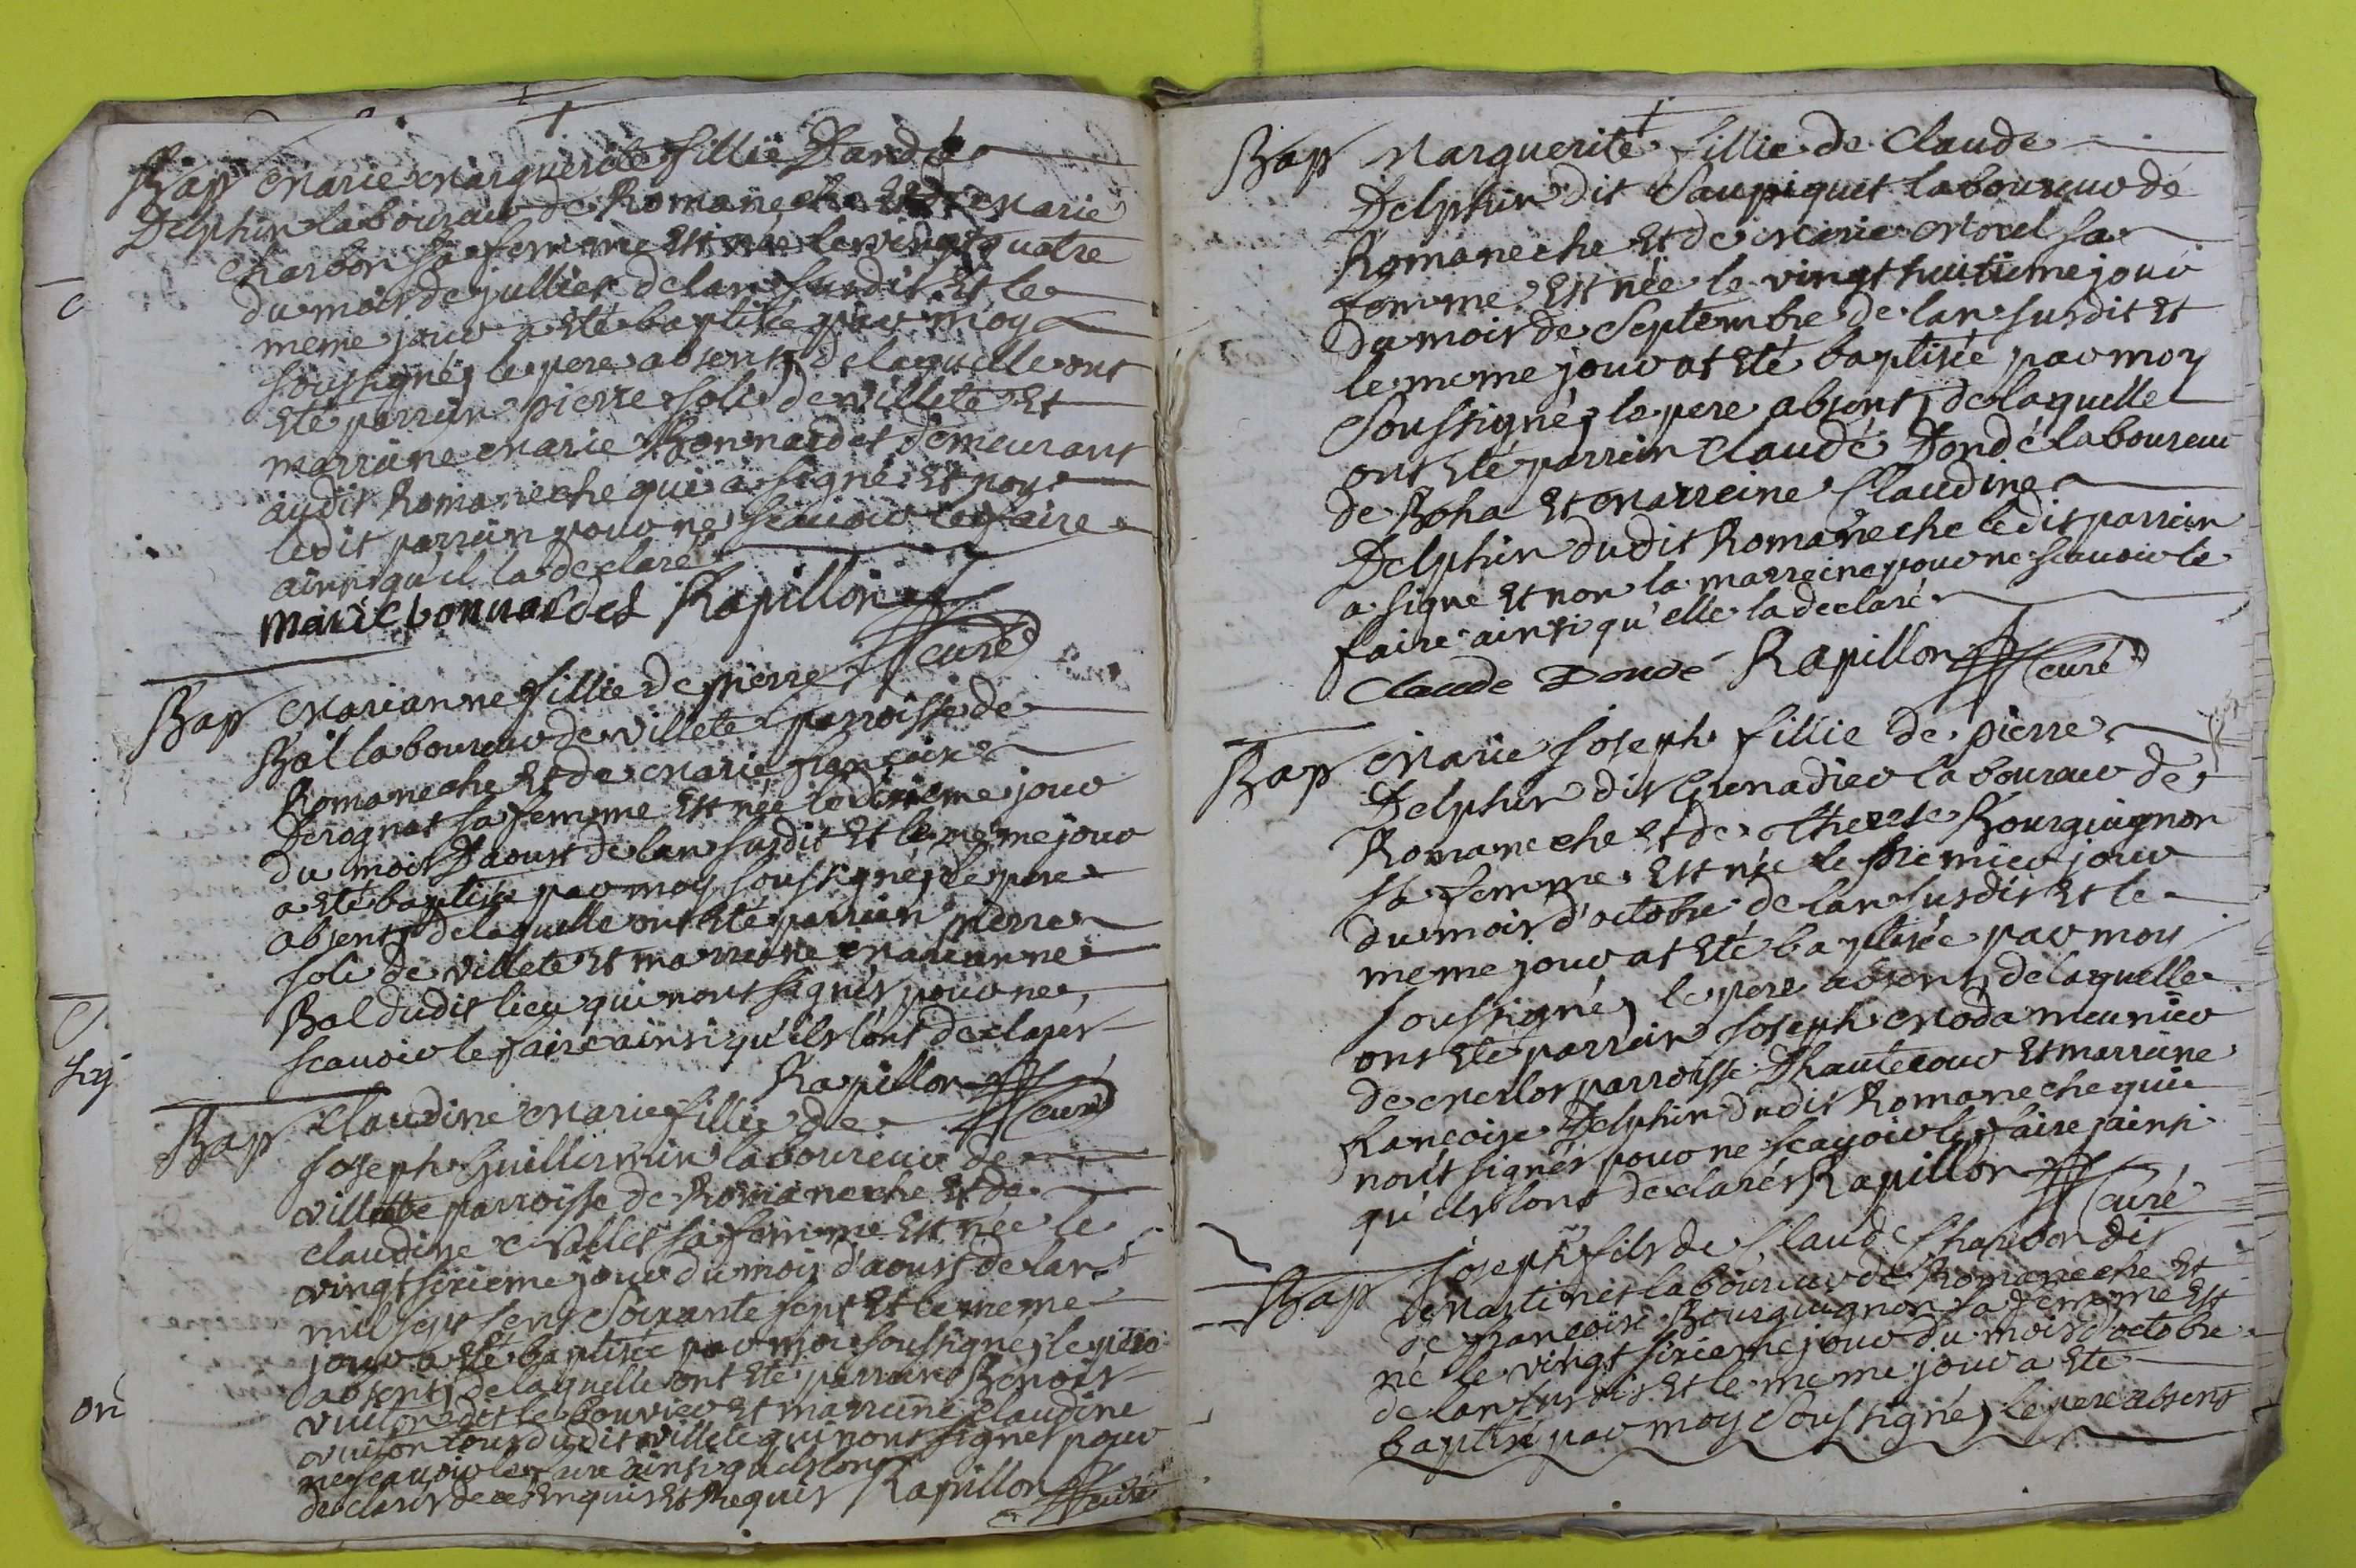 Bap Marie Marguerite fillie D'andré
Delphin laboureur de Romaneche Et de Marie
Charbon sa femme Est née le vingt quatre
du mois de jullier de lan susdit Et le
meme jour a Eté baptisée par moy
soussigné, le pere absent, de laquelle ont
Eté parrein pierre soli de villete Et
marreine Marie Bonnardet demeurant
audit Romaneche qui a signé Et non
ledit parrein pour ne scavoir le faire
ainsi qu'il la declaré
Marie bonnardet Rapillon
curé
Bap Marianne fillie de pierre
Bal laboureur de villete parroisse de
Romaneche Et de Marie françoise
Derognat sa femme Est née le dixieme jour
du mois Daoust de lan susdit Et le meme jour
a Eté baptisée par moy soussigné, le pere
absent, de laquelle ont Eté parrein pierre
soli de villete Et marreine Marianne
Bal dudit lieu qui nont signés pour ne
scavoir le faire ainsi qu'ils lont declarés
Rapillon
curé
Bap Claudine Marie fillie de
Joseph Guillermin laboureur de
villette parroisse de Romaneche Et de
Claudine sa femme Est née le
vingt sixieme jour du mois d'aoust de lan
mil sept sent soixante sept Et le meme
jour a Eté baptisée par moi soussigné, le pere
absent, de laquelle ont Eté parrein Benoit
vuiton dit le bouvier Et marreine Claudine
vuiton tous dudit villete qui nont signés pour
ne scavoir le faire ainsi quils lont
declarés de ce Enquis Et Requis Rapillon
curé
on
Bap Marguerite fillie de Claude
Delphin dit Saupiquet laboureur de
Romaneche Et de Marie Morel sa
femme Est née le vingt huitieme jour
du mois de Septembre de lan susdit Et
le meme jour at Eté baptisée par moy
Soussigné, le pere absent, de laquelle
ont Eté parrein Claude Dondé laboureur
de Boha Et Marreine Claudine
Delphin dudit Romaneche ledit parrein
a signé Et non la marreine pour ne scavoir le
faire ainsi qu'elle la declaré
Claude Dondé Rapillon
curé
Bap Marie Joseph fillie de pierre
Delphin dit Grenadier laboureur de
Romaneche Et de Therese Bourguignon
sa femme Est née le premier jour
du mois d'octobre de lan susdit Et le
meme jour at Eté baptisée par moy
soussigné, le pere absent, de laquelle
ont Eté parrein Joseph Moda meunier
de Merlos parroisse D'hautecour Et marreine
francoise Delphin dudit Romaneche qui
nont signés pour ne scavoir le faire ainsi
qu'ils lont declarés Rapillon
curé
Bap Joseph fils de Claude Charbon dit
Martinet laboureur de Romaneche Et
de francoise Bourguignon sa femme Est
né le vingt sixieme jour du mois d'octobre
de lan susdit Et le meme jour a Eté
baptisé par moy Soussigné, le pere absent